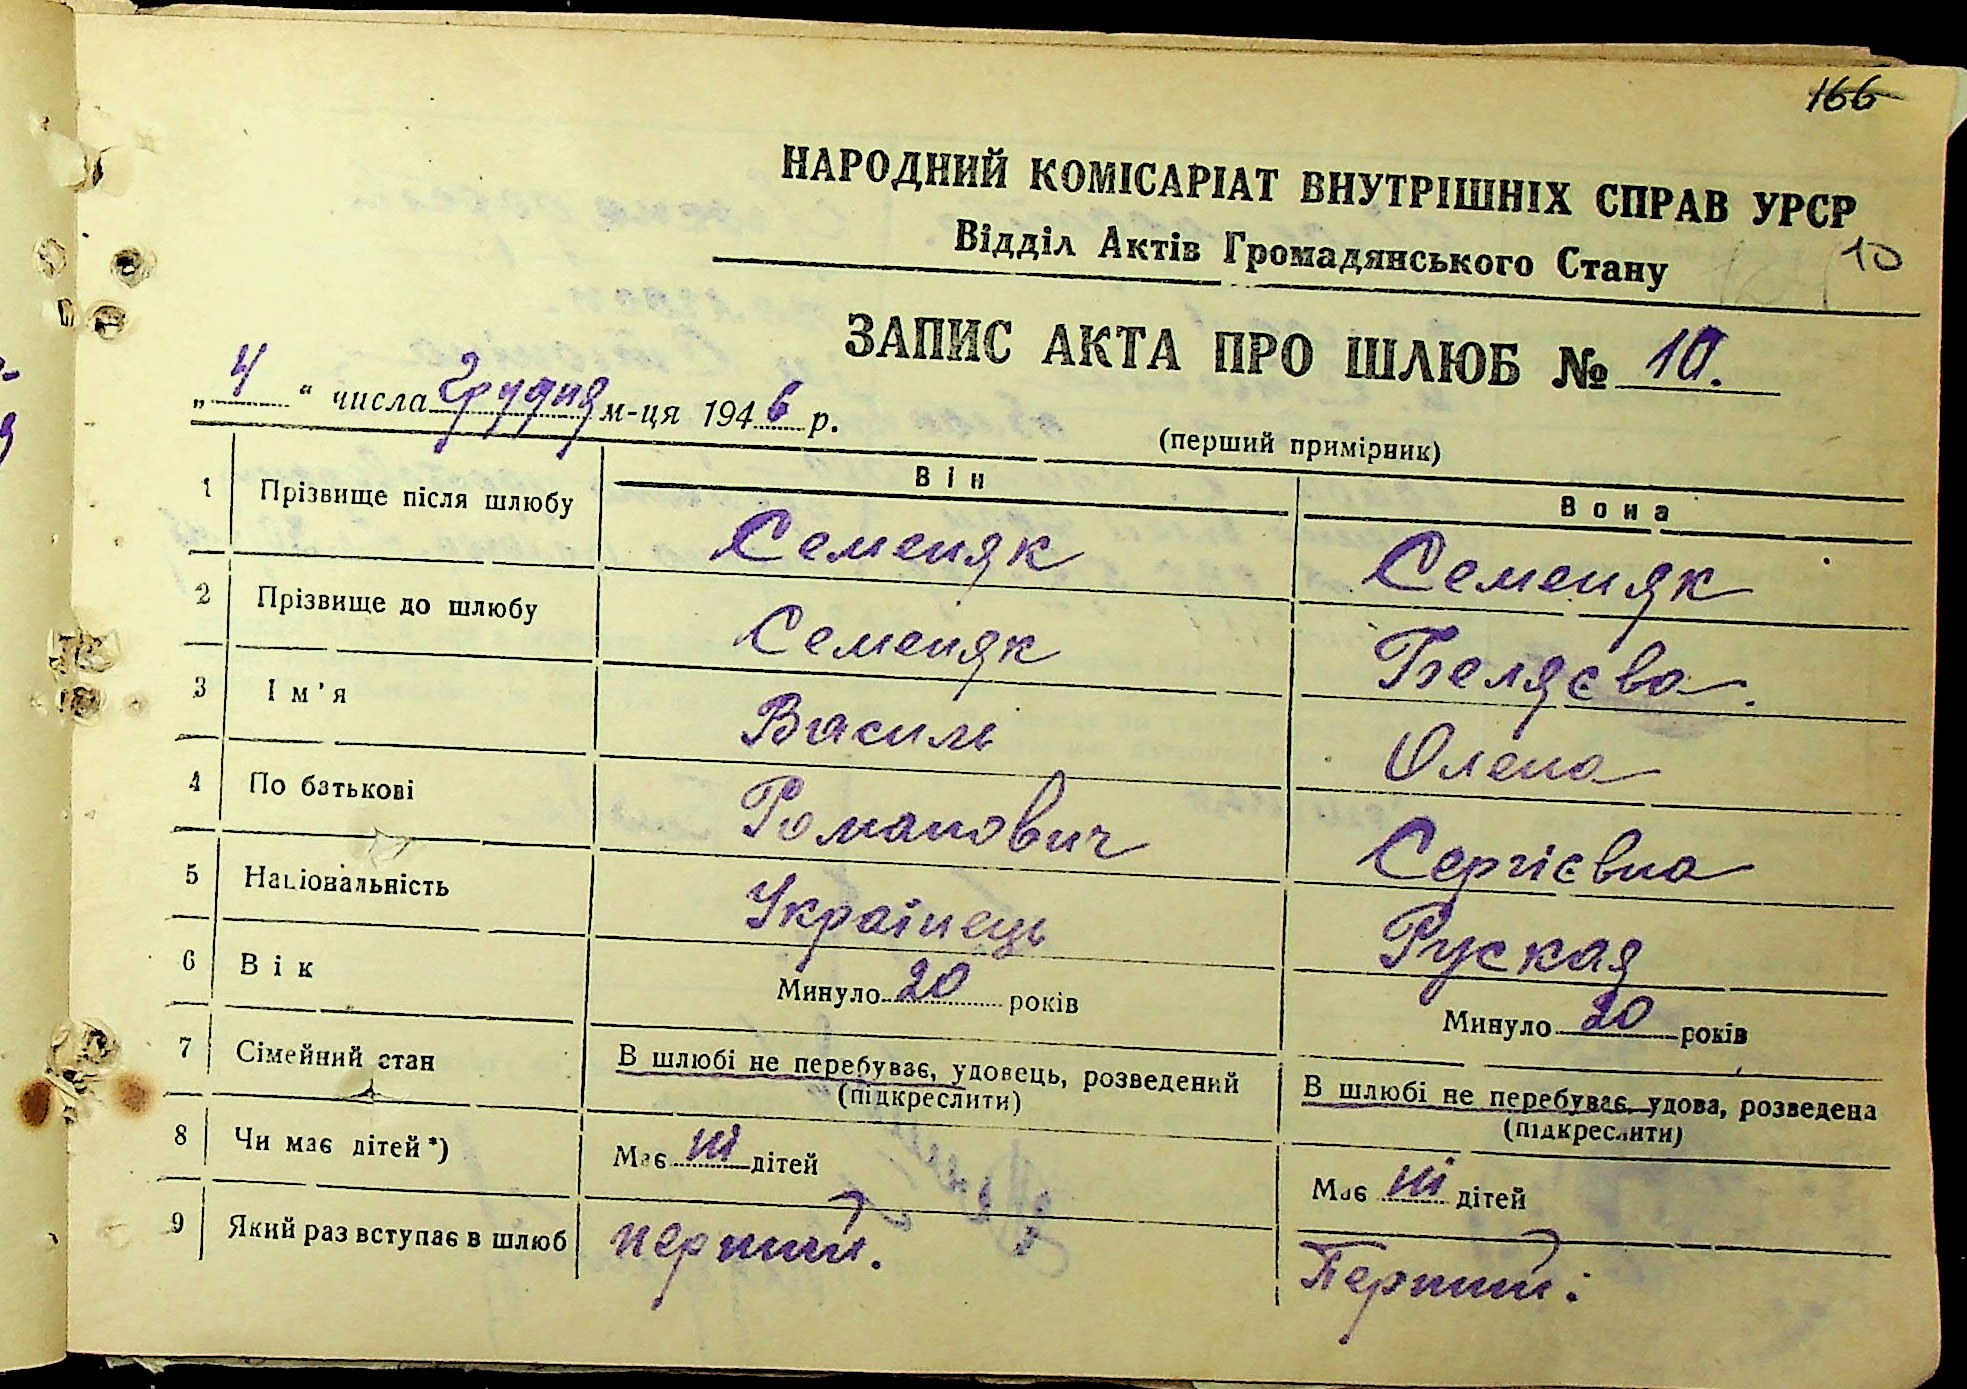 166
НАРОДНИЙ КОМІСАРІАТ ВНУТРІШНІХ СПРАВ УРСР
Відділ Актів Громадянського Стану
10
ЗАПИС АКТА ПРО ШЛЮБ № 10.
„4“ числа Грудня м-ця 1946 р.
(перший примірник)
Він Вона
1 Прізвище після шлюбу Семеняк Семеняк
2 Прізвище до шлюбу Семеняк Беляєва
3 Ім'я Василь Олена
4 По батькові Романович Сергієвна
5 Національність Українець Руская
6 Вік Минуло 20 років Минуло 20 років
7 Сімейний стан В шлюбі не перебуває, удовець, розведений В шлюбі не перебуває, удова, розведена
(підкреслити) (підкреслити)
8 Чи має дітей*) Має ні дітей Має ні дітей
9 Який раз вступає в шлюб перший. Перший.